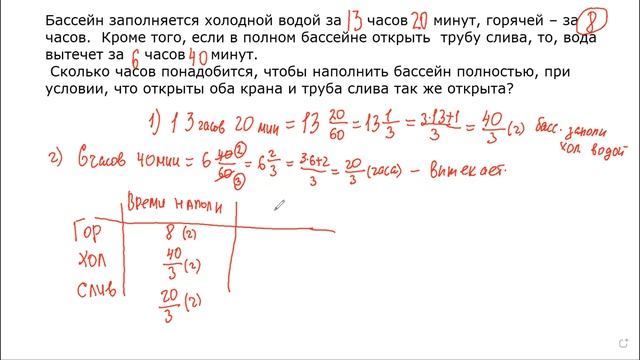 Бассейн заполняется холодной водой за 13 часов 20 минут, горячей – за 8
часов. Кроме того, если в полном бассейне открыть трубу слива, то, вода
вытечет за 6 часов 40 минут.
Сколько часов понадобится, чтобы наполнить бассейн полностью, при
условии, что открыты оба крана и труба слива так же открыта?
1) 13 часов 20 мин = 13 20/60 = 13 1/3 = (3·13+1)/3 = 40/3 (ч) басс. заполн
хол водой
2) 6 часов 40 мин = 6 40/60 2/3 = 6 2/3 = (3·6+2)/3 = 20/3 (часа) – вытекает.
Время наполн
Гор 8 (ч)
Хол 40/3 (ч)
Слив 20/3 (ч)